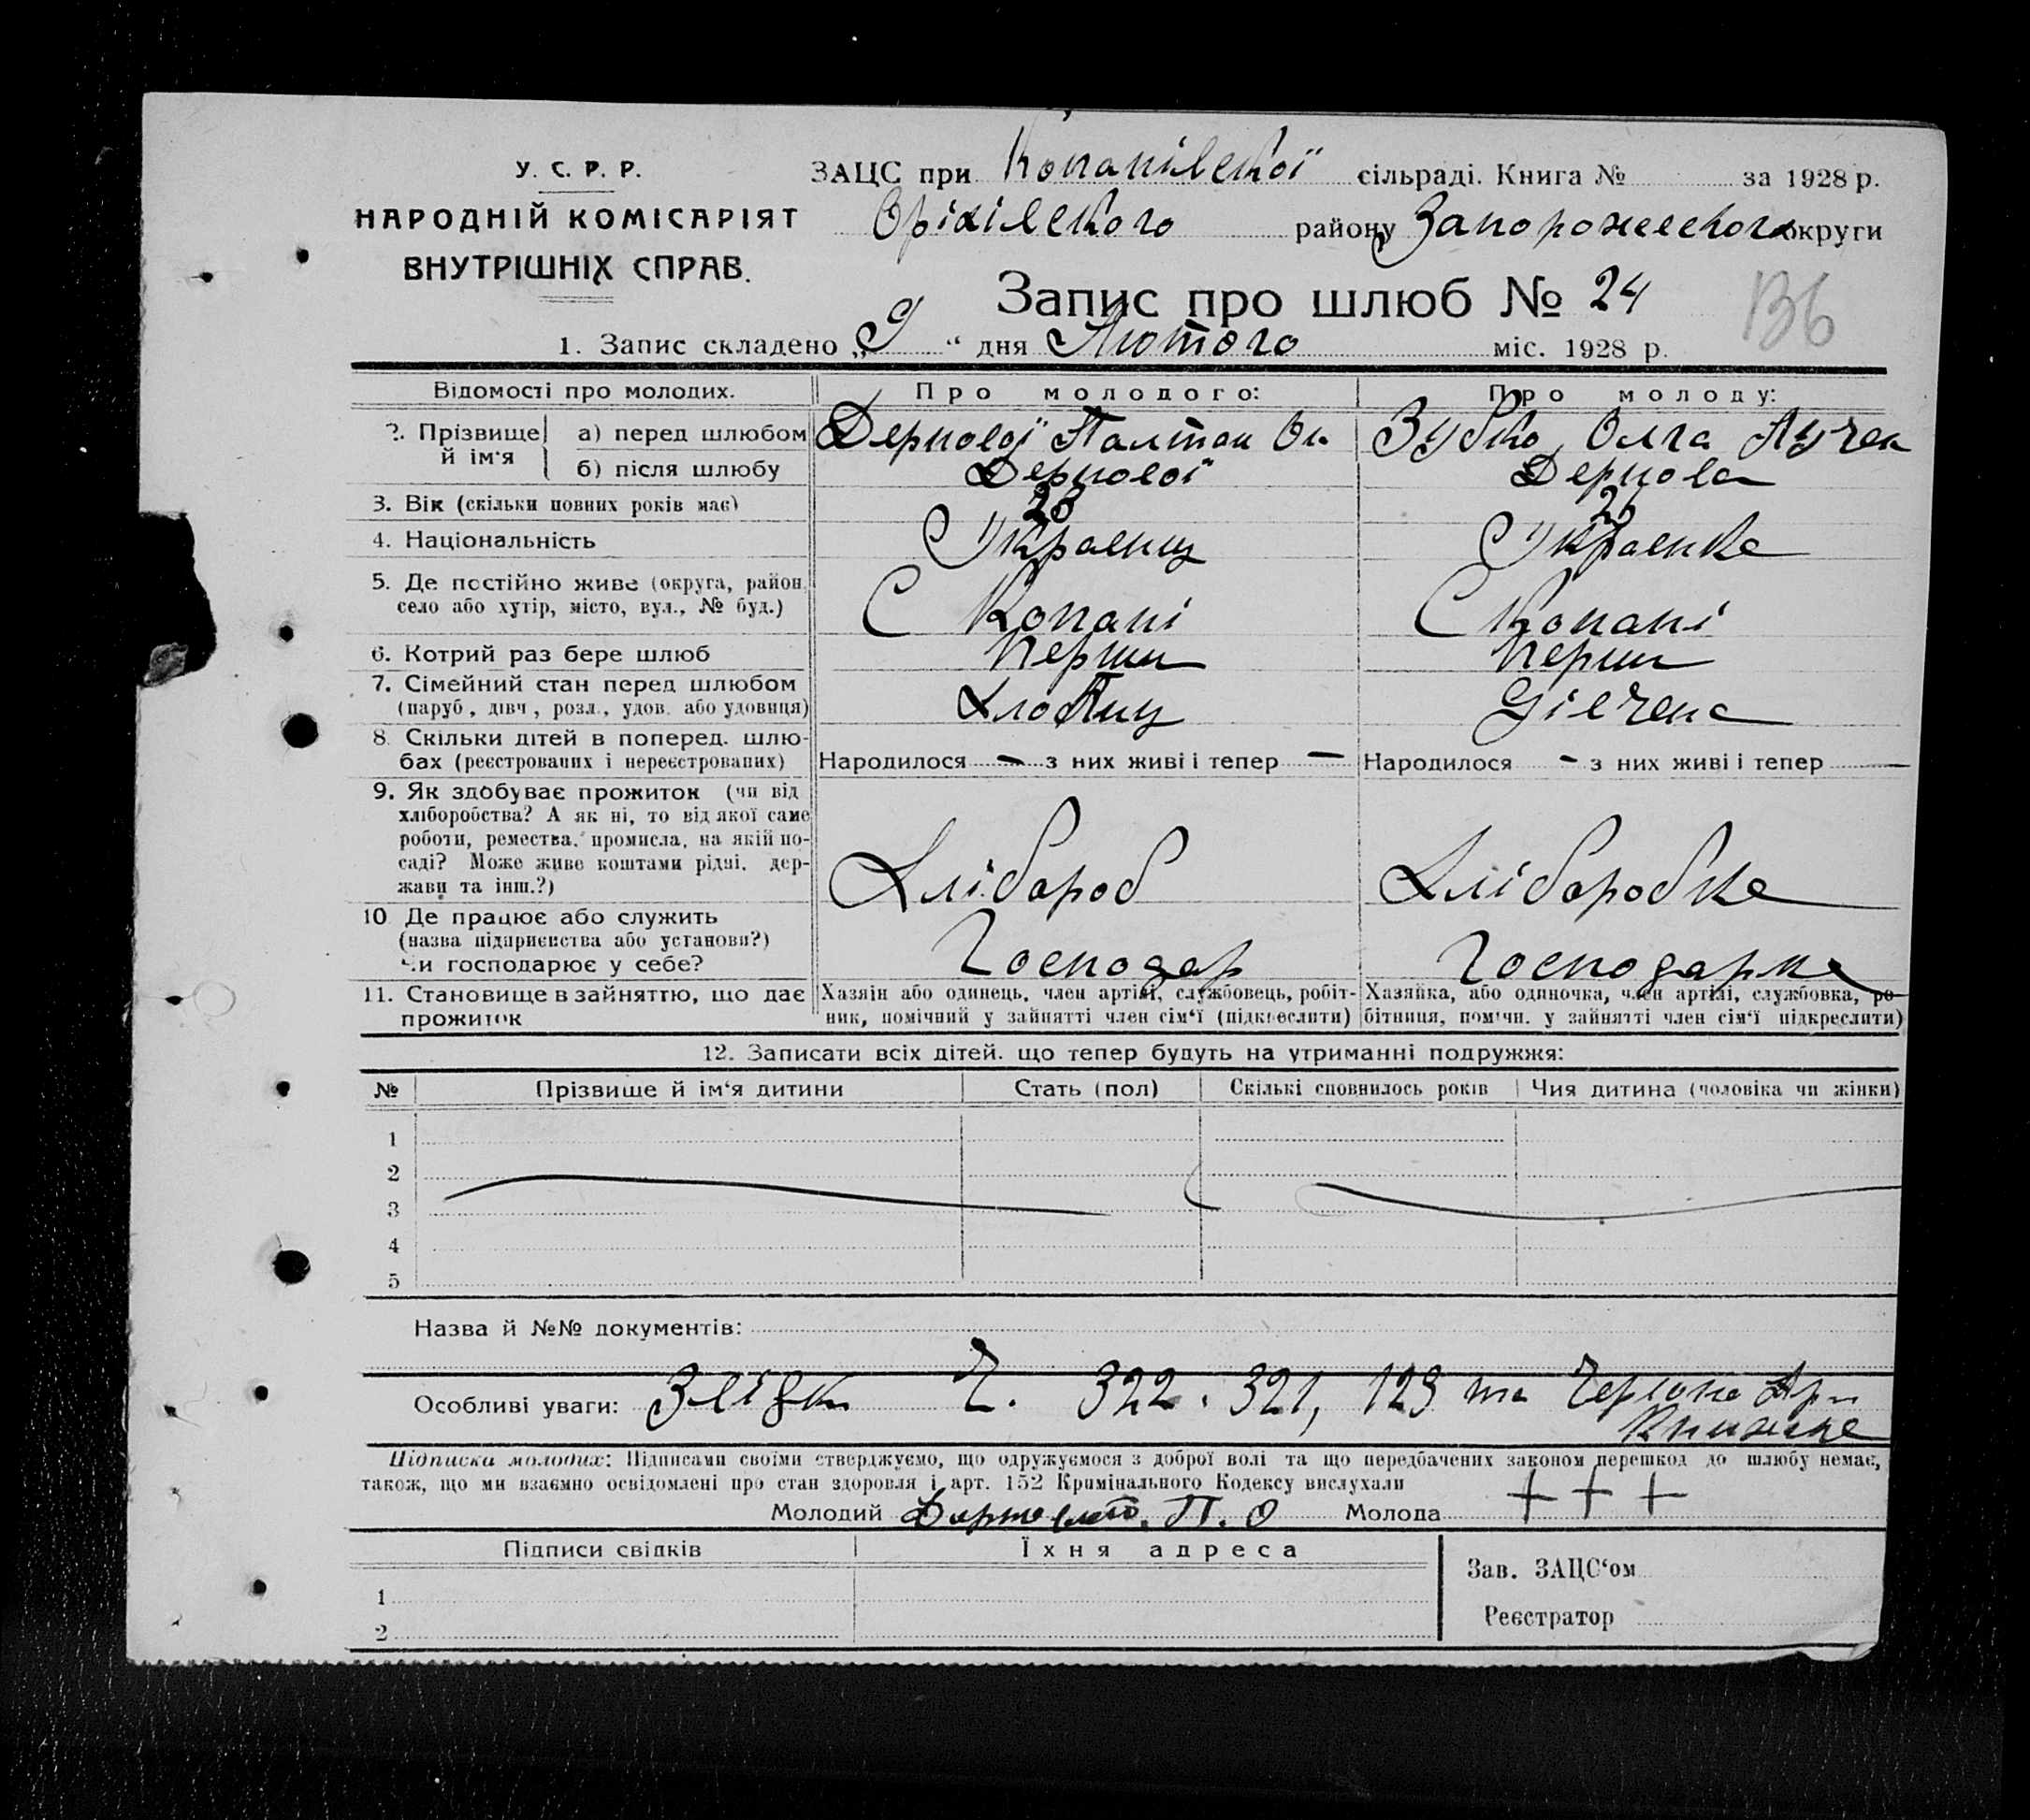 У. С. Р. Р.
НАРОДНІЙ КОМІСАРІЯТ
ВНУТРІШНІХ СПРАВ.
ЗАЦС при Копанівскої сільраді. Книга № за 1928 р.
Оріхівского району Запорожеского округи
Запис про шлюб № 24
136
1. Запис складено „9“ дня Лютого міс. 1928 р.
Відомості про молодих. Про молодого: Про молоду:
2. Прізвище й ім'я
а) перед шлюбом Зубко Олга
б) після шлюбу Дернова
3. Вік (скільки повних років має) 23
4. Національність Украенец Украенка
5. Де постійно живе (округа, район, село або хутір, місто, вул., № буд.) С Копані С Копані
6. Котрий раз бере шлюб Перши Перши
7. Сімейний стан перед шлюбом (паруб, дівч, розл., удов. або удовиця) Хлопиц Дівчена
8. Скільки дітей в поперед. шлюбах (реєстрованих і нереєстрованих) Народилося — з них живі і тепер — Народилося - з них живі і тепер —
9. Як здобуває прожиток (чи від
хліборобства? А як ні, то від якої саме
роботи, ремества, промисла, на якій по-
саді? Може живе коштами рідні, дер-
жави та інш.?) Хлібороб Хліборобка
10 Де працює або служить
(назва підприємства або установи?)
Чи господарює у себе? Господар Господарка
11. Становище в зайняттю, що дає прожиток
Хазяін або одинець, член артілі, службовець, робіт-
ник, помічний у зайнятті член сім'ї (підкреслити)
Хазяйка, або одиночка, член артілі, службовка, ро-
бітниця, помічн. у зайнятті член сім'ї підкреслити)
12. Записати всіх дітей, що тепер будуть на утриманні подружжя:
№ Прізвише й ім'я дитини Стать (пол) Скількі сповнилось років Чия дитина (чоловіка чи жінки)
1
2
3
4
5
Назва й №№ документів:
Особливі уваги: Ч. 322. 321, 123 та
Книжка
Підписка молодих: Підписами своїми стверджуємо, що одружуємося з доброї волі та що передбачених законом перешкод до шлюбу немає,
також, що ми взаємно освідомлені про стан здоровля і арт. 152 Кримінального Кодексу вислухали
Молодий П. О Молода + + +
Підписи свідків Їхня адреса
1
2
Зав. ЗАЦС‘ом
Реєстратор